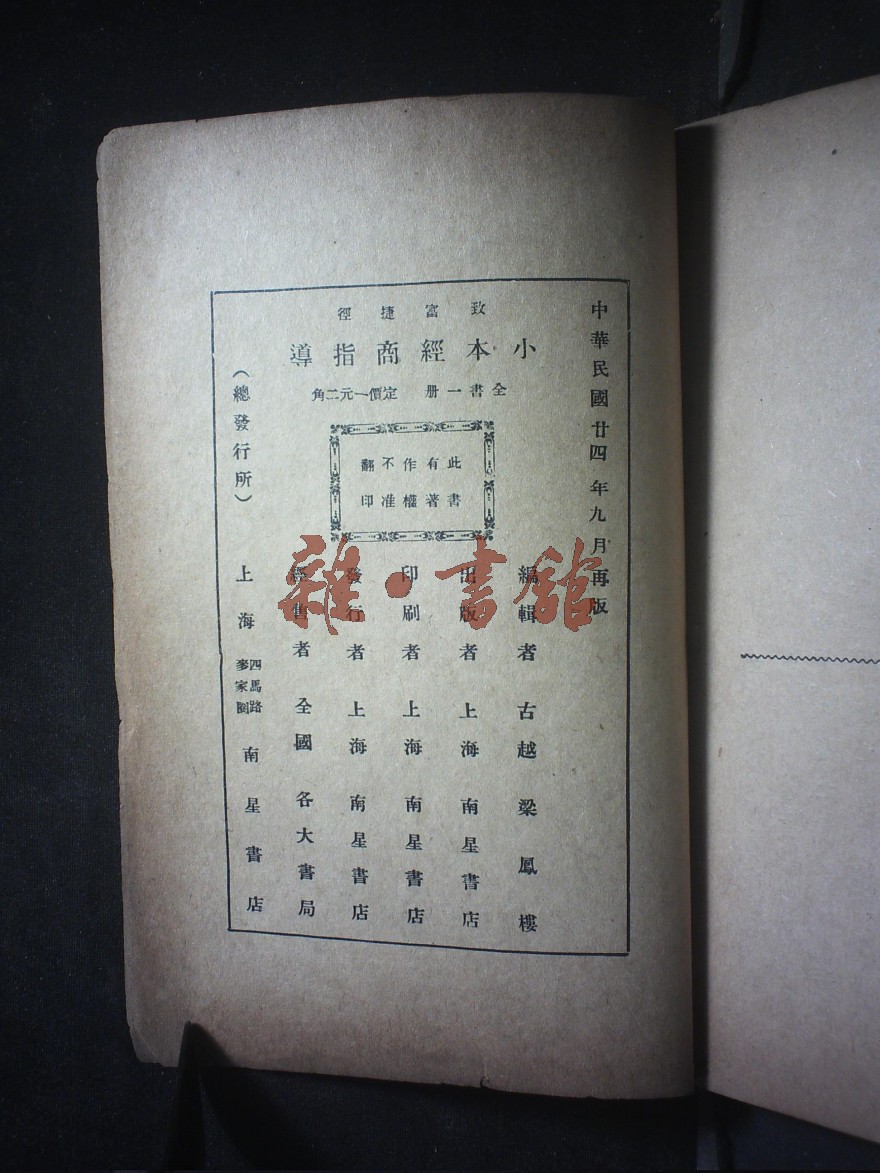 中華民國廿四年九月再版
致富捷徑
小本經商指導
全書一册 定價一元二角
此書
有著
作權
不准
翻印
編輯者 古越梁鳳樓
出版者 上海南星書店
印刷者 上海南星書店
發行者 上海南星書店
經售者 全國各大書局
(總發行所) 上海 四馬路麥家圈 南星書店
雜·書館